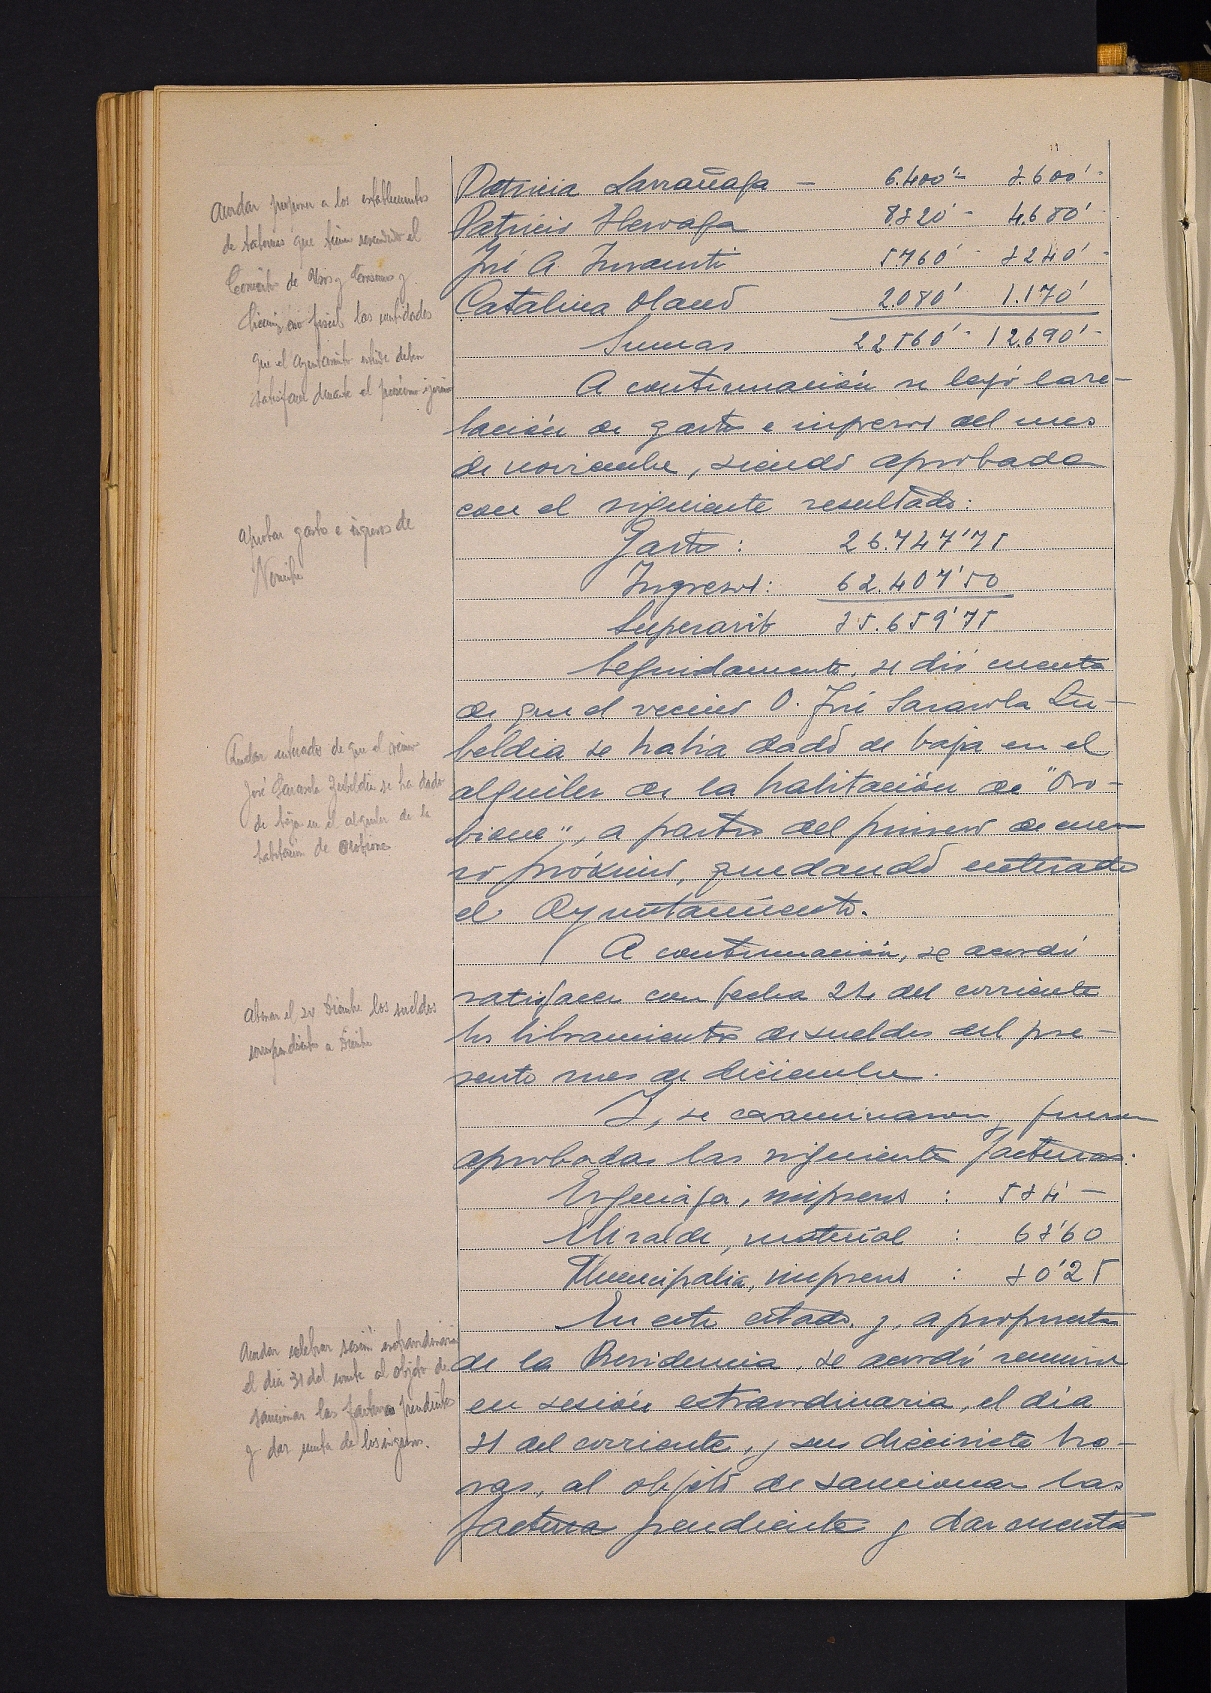 Patricia Larrañaga — 6.400'- 3.600'-
Patricio Iberoaga 8.320'- 4.680'-
José A. Inrausti 5760'- 3240'-
Catalina Olano 2080' 1.170'
Sumas 22560'- 12.690'-
A continuación se leyó la re-
lación de gastos e ingresos del mes
de noviembre, siendo aprobada
con el siguiente resultado:
Gastos: 26.747'75
Ingresos: 62.407'50
Superavit 35.659'75
Seguidamente, se dió cuenta
de que el vecino D. José Sarasola Zu-
beldia se había dado de baja en el
alquiler de la habitación de "Oro-
bione", a partir del primero de ene-
ro próximo, quedando enterado
el Ayuntamiento.
A continuación, se acordó
satisfacer con fecha 24 del corriente
los libramientos de sueldos del pre-
sente mes de diciembre.
Y, se examinaron y fueron
aprobadas las siguientes facturas:
impresos : 534 —
Elizalde, material : 63'60
Municipalia, impresos : 30'25
En este estado, y, a propuesta
de la Presidencia, se acordó reunirse
en sesión extraordinaria, el día
31 del corriente, y sus diecisiete ho-
ras, al objeto de sancionar las
facturas pendientes y dar cuenta
Acordar proponer a los establecimientos
de tabernas que tienen el
Concierto de Usos y Consumos y
las cantidades
que el Ayuntamiento deben
satisfacer durante el próximo ejercicio
Aprobar gastos e ingresos de
Novbre
Quedar enterado de que el vecino
José Sarasola Zubeldia se ha dado
de baja en el alquiler de la
habitación de Orobione
Abonar el 24 Diciembre los sueldos
correspondientes a Dicbre
Acordar celebrar sesión extraordinaria
el día 31 del corrte al objeto de
sancionar las facturas pendientes
y dar cuenta de los ingresos.